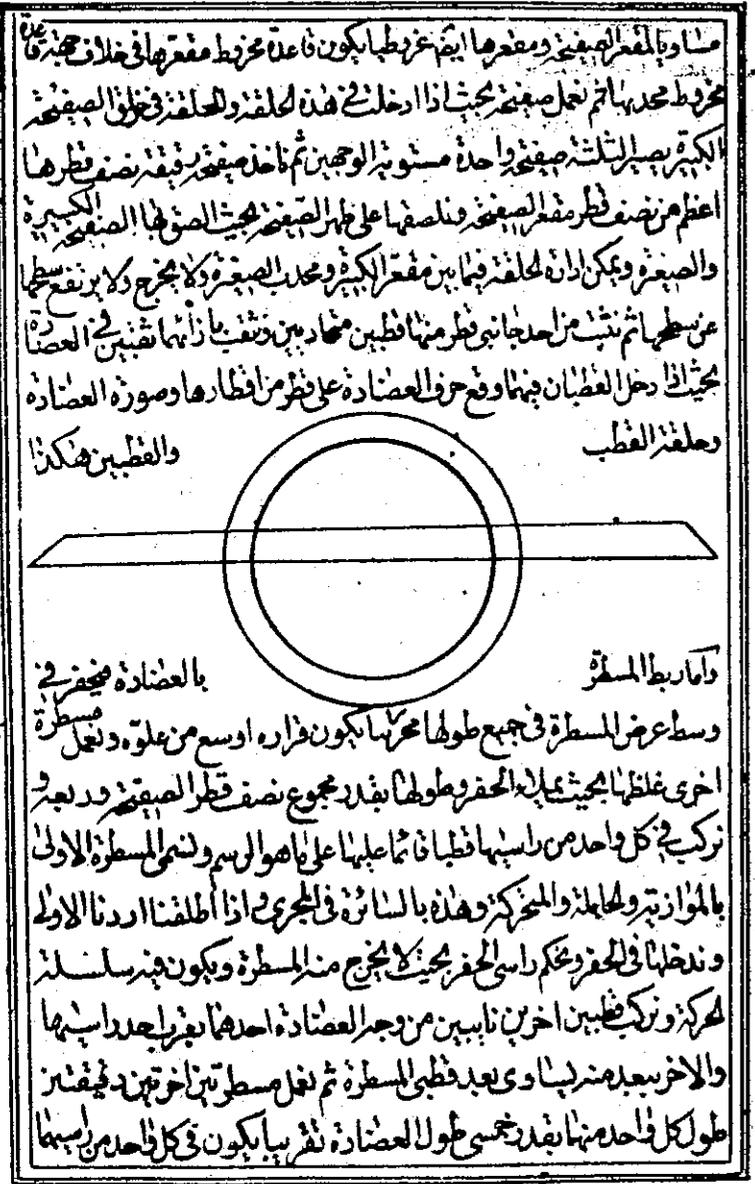 مساويا لمقعر الصفيحة ومقعرها ايضا مخروطيا يكون قاعدة مخروط مقعرها في خلاف جهة قاعدة
مخروط محدبها ثم نعمل صفيحة بحيث اذا ادخلت في هذه الحلقة والحلقة في خلق الصفيحة
الكبيرة يصير الثلثة صفيحة واحدة مستوية الوجهين ثم ناخذ صفيحة رقيقة نصف قطرها
اعظم من نصف قطر مقعر الصفيحة ونلصقها على ظهر الصفيحة بحيث الصق لها الصفيحة الكبيرة
والصغرة ويمكن ادارة الحلقة فيما بين مقعر الكبيرة ومحدب الصغرة ولا يخرج ولا يرتفع سطحها
عن سطحها ثم نثبت من احد جانبي قطر منها قطبين متحاديين ونثقب بازائهما ثقبتين في العضادة
بحيث اذا دخل القطبان فيهما وقع حرف العضادة على قطر من اقطارها وصورة العضادة
وحلقة القطب والقطبين هكذا
واما ربط المسطرة بالعضادة فيحفر في
وسط عرض المسطرة في جميع طولها محريها يكون قراره اوسع من علوه ونعمل مسطرة
اخرى غلظها بحيث يملاء الحفر وطولها بقدر مجموع نصف قطر الصفيحة وربعه و
نركب في كل واحد من راسيها قطبا قائما عليها على ما هو الرسم ولنسمى المسطرة الاولى
بالموازية والحاملة والمتحركة وهذه بالسائرة في المجرى واذا اطلقنا اردنا الاولى
وندخلها في الحفر ونحكم راسى الحفر بحيث لا يخرج منه المسطرة ويكون فيه سلسلة
الحركة ونركب قطبين اخرين نابيين من وجه العضادة احدهما بقرب احد راسيها
والاخر ببعد منه يساوى بعد قطبى المسطرة ثم نعمل مسطرتين اخرتين دقيقتين
طول كل واحد منهما بقدر خمسى طول العضادة تقريبا يكون في كل واحد من راسيهما